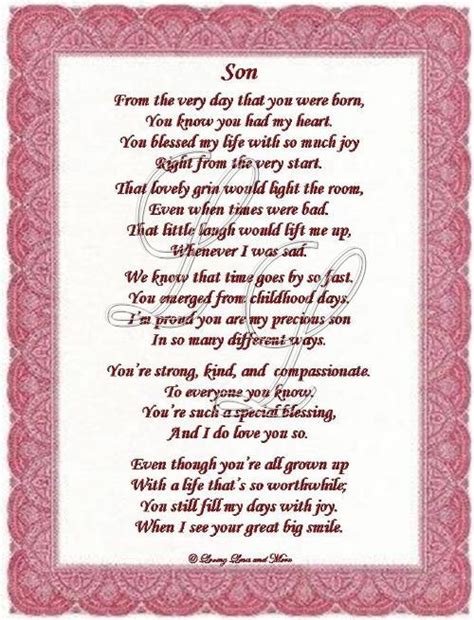 Son
From the very day that you were born,
You know you had my heart.
You blessed my life with so much joy
Right from the very start.
That lovely grin would light the room,
Even when times were bad.
That little laugh would lift me up,
Whenever I was sad.
We know that time goes by so fast.
You emerged from childhood days.
I'm proud you are my precious son
In so many different ways.
You're strong, kind, and compassionate.
To everyone you know.
You're such a special blessing,
And I do love you so.
Even though you're all grown up
With a life that's so worthwhile;
You still fill my days with joy.
When I see your great big smile.
© Loving Lines and More